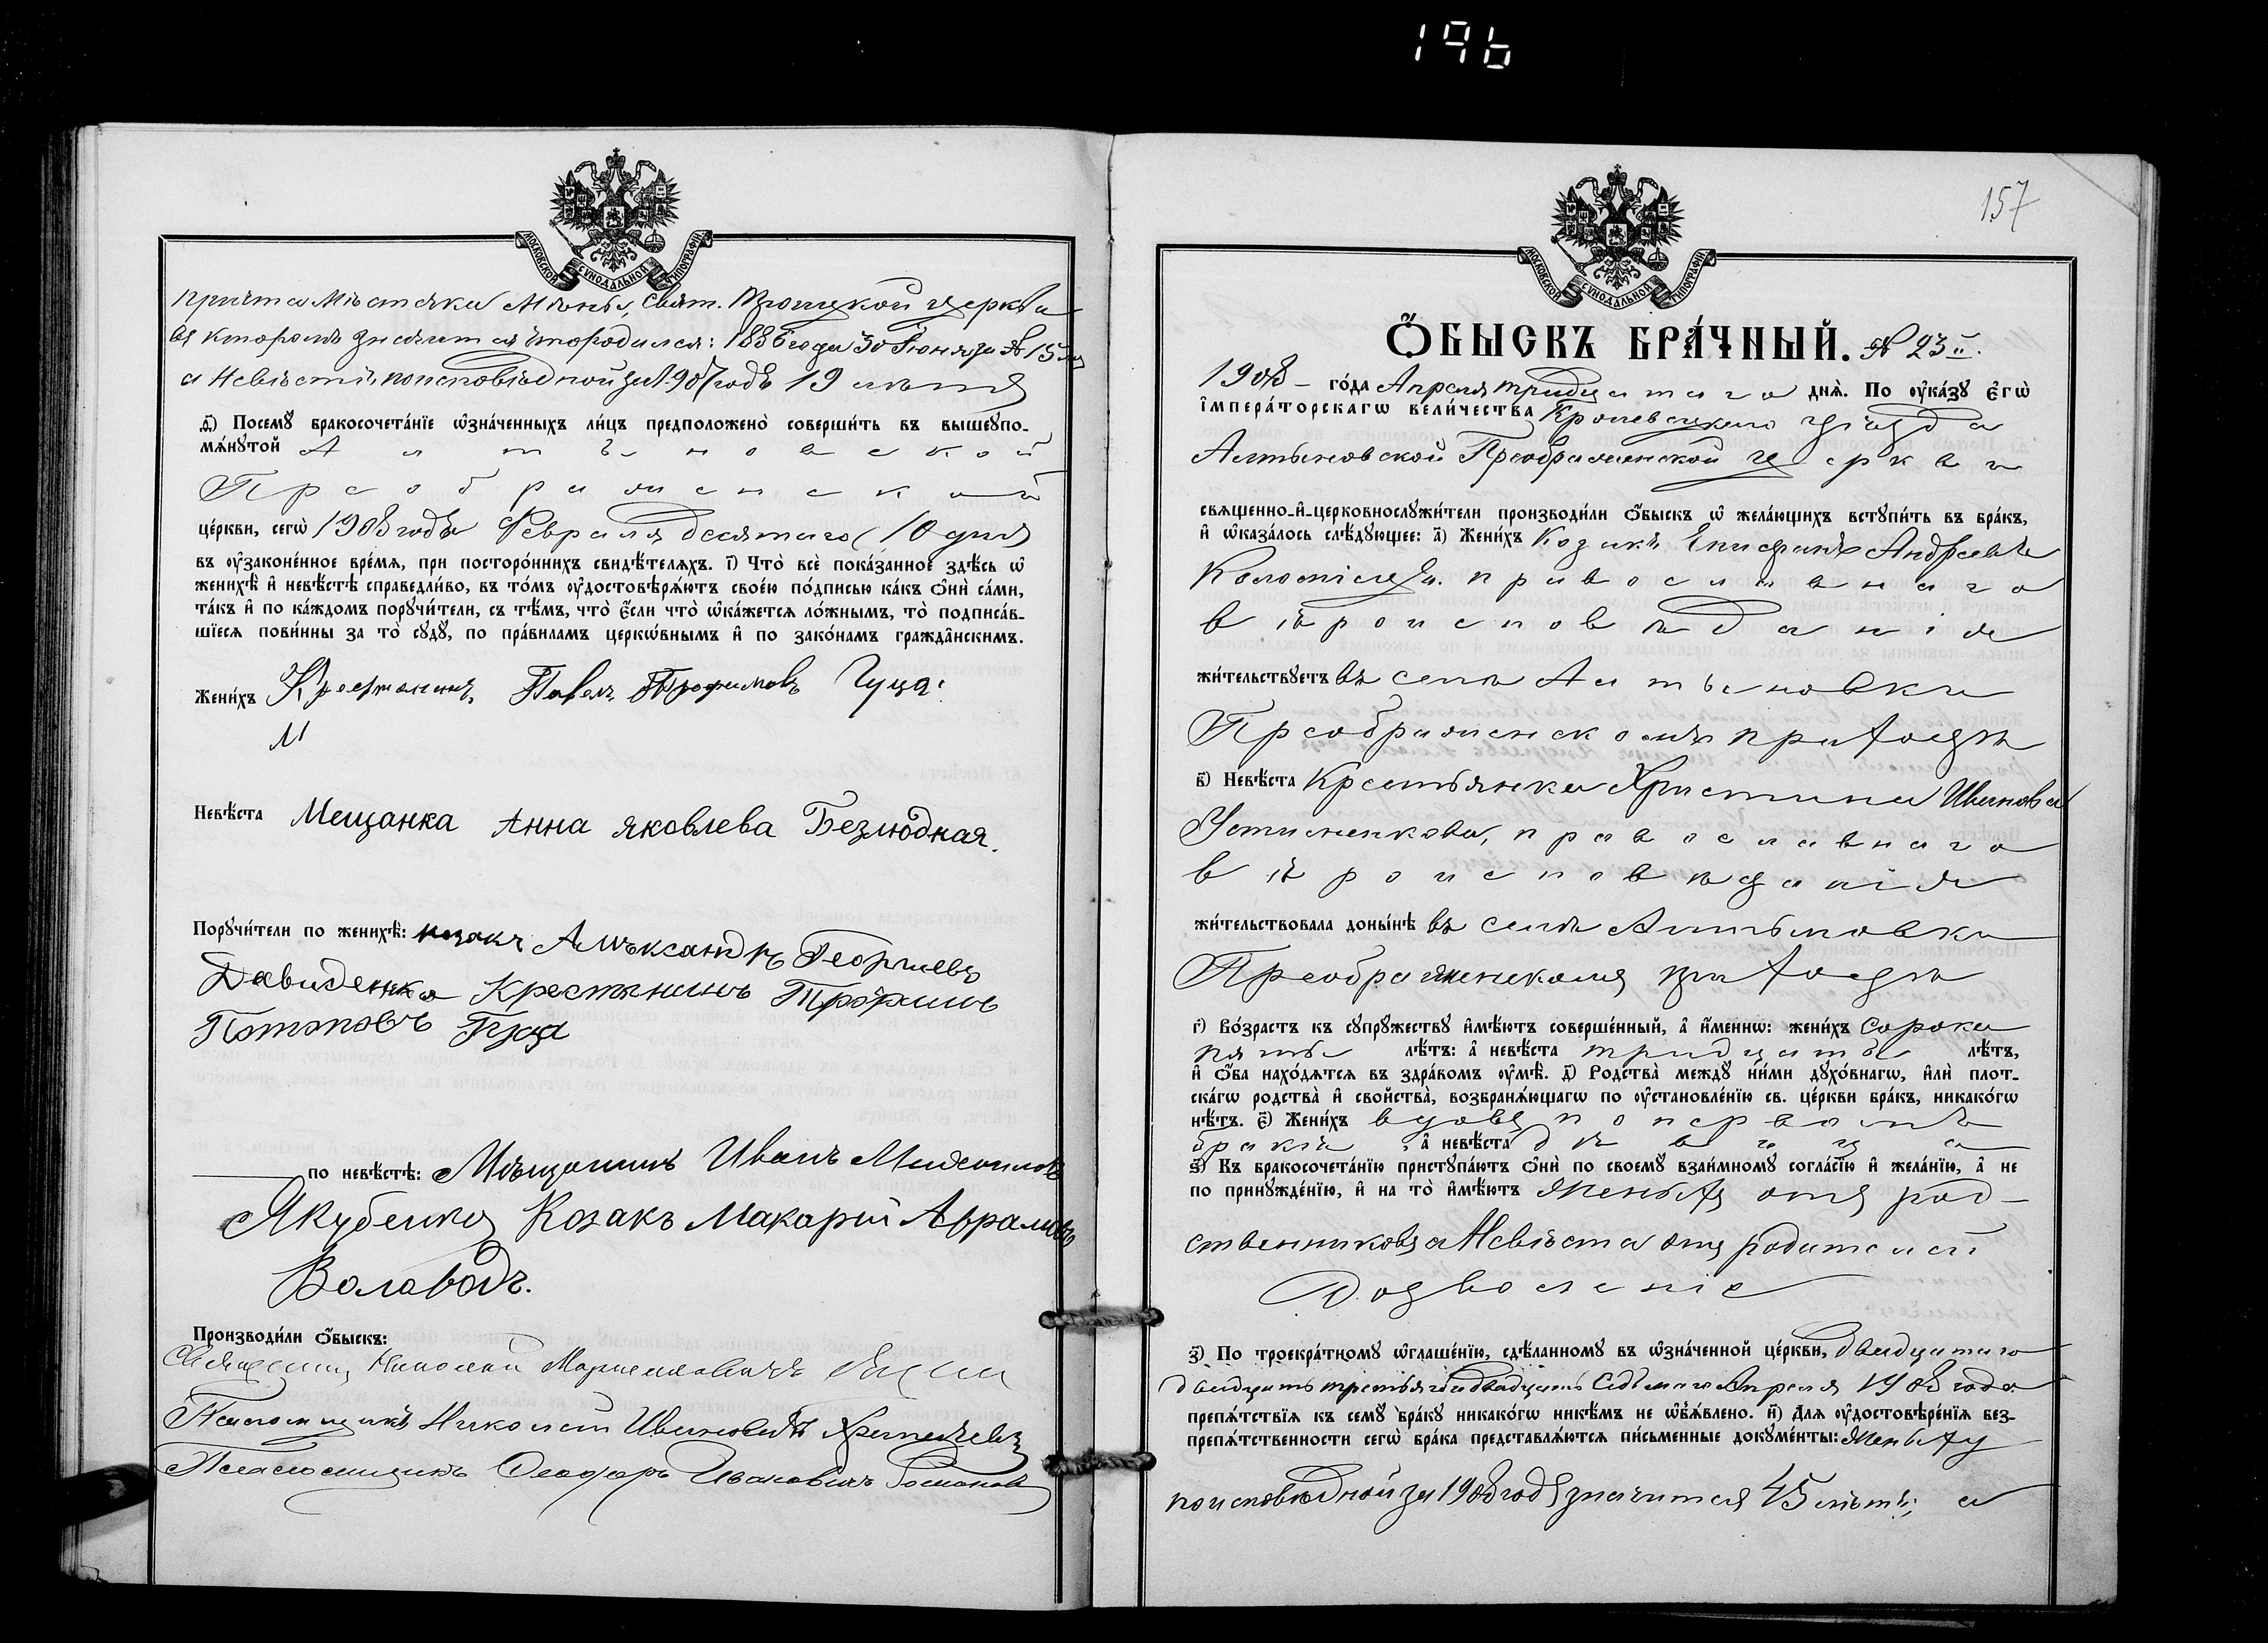 196
МОСКОВСКОЙ СУНОДАЛЬНОЙ ТИПОГРАФІИ
Свят. Троицкой церкви
въ которомъ значится что родился: 1886 года 30 Іюня за № 15
а Невѣстѣ по исповѣдной за 1907 годъ 19 лѣтъ
д҃) Посемꙋ̀ бракосочета́нїе ѡ҆зна́ченныхъ ли́цъ предположено̀ соверши́ть въ вышеꙋпо-
мѧ́нꙋтой Алтыновской
Преображенской
це́ркви, сегѡ̀ 1908 года Февраля десятаго (10 дня)
въ ᲂу҆законе́нное вре́мѧ, при посторо́ннихъ свидѣ́телѧхъ. і҃) Что̀ всѐ пока́занное здѣ́сь ѡ҆
женихѣ̀ и҆ невѣ́стѣ справедли́во, въ то́мъ ᲂу҆достовѣрѧ́ютъ свое́ю по́дписью ка́къ ѻ҆нѝ са́ми,
та́къ и҆ по ка́ждомъ порꙋчи́тели, съ тѣ́мъ, что̀ є҆́сли что̀ ѡ҆ка́жется ло́жнымъ, то̀ подписа́в-
шїесѧ пови́нны за то̀ сꙋдꙋ̀, по пра́виламъ церкѡ́внымъ и҆ по зако́намъ гражда̂нскимъ.
Жени́хъ Крестянинъ Павелъ Трофимовъ Гуца.
Невѣ́ста Мещанка Анна Яковлева Безлюдная.
Порꙋчи́тели по женихѣ̀: козакъ Алѣксандръ Георгиевъ
Давиденко Крестянинъ Трофимъ
Потаповъ Гуца
по невѣ́стѣ: Мѣщанинъ Иванъ
Якубенко Козакъ Макарій Аврамовъ
Воловодъ.
Производи́ли ѻ҆́быскъ:
Священникъ Николай
Псаломщикъ Николай Ивановичъ
Псаломщикъ Феодоръ Ивановичъ Романовъ
157
МОСКОВСКОЙ СУНОДАЛЬНОЙ ТИПОГРАФІИ
Ѻ҆́БЫСКЪ БРА́ЧНЫЙ. № 23й.
1908 – го́да Апреля тридцатаго днѧ̀. По ᲂу҆ка́зꙋ є҆гѡ̀
і҆мпера́торскагѡ вели́чества Кролевецкаго уѣзда
Алтыновской Преображенской церкви
свѧщенно-и҆-церковнослꙋжи́тели производи́ли ѻ҆́быскъ ѡ҆ жела́ющихъ встꙋпи́ть въ бра́къ,
и҆ ѡ҆каза́лось слѣ́дꙋющее: а҃) Жени́хъ Козакъ Епифанъ Андреевъ
православнаго
вѣроисповѣданія
жи́тельствꙋетъ въ селѣ Алтыновки
Преображенскомъ приходѣ
в҃) Невѣ́ста Крестьянка Христина Иванова
Устименкова, православнаго
вѣроисповѣданія
жи́тельствовала доны́нѣ въ селѣ Алтыновки
Преображенскомъ приходѣ
г҃) Во́зрастъ къ сꙋпрꙋ́жествꙋ и҆мѣ́ютъ соверше́нный, а҆ и҆́меннѡ: жени́хъ сорока
пять лѣ́тъ: а҆ невѣ́ста тридцать лѣ́тъ,
и҆ ѻ҆́ба нахо́дятся въ здра́вомъ ᲂу҆мѣ̀. д҃) Родства̀ междꙋ̀ ни́ми дꙋхо́внагѡ, и҆лѝ плот-
ска́гѡ родства̀ и҆ сво́йства̀, возбранѧ́ющагѡ по ᲂу҆становле́нїю св. це́ркви бра́къ, никако́гѡ
нѣ́тъ. є҃) Жени́хъ вдовъ по первомъ
бракѣ, а҆ невѣ́ста дѣвица
ѕ҃) Къ бракосочета́нїю пристꙋпа́ютъ ѻ҆нѝ по своемꙋ̀ взаи́мномꙋ согла́сїю и҆ жела́нїю, а҆ не
по принꙋжде́нїю, и҆ на то̀ и҆мѣ́ютъ Женихъ отъ род-
ственниковъ а Невѣста отъ родителей
дозволеніе
з҃) По троекра́тномꙋ ѡ҆глаше́нїю, сдѣ́ланномꙋ въ ѡ҆зна́ченной це́ркви, двадцатаго
двадцать третьяго и двадцать седьмаго Апреля 1908 года
препѧ́тствїѧ къ семꙋ̀ бра́кꙋ никако́гѡ никѣ́мъ не ѡ҆б̾ѧ́влено. и҃) Длѧ̀ ᲂу҆достовѣре́нїѧ без-
препѧ́тственности сегѡ̀ бра́ка представлѧ́ются пи́сьменные докꙋме́нты: Жениху
по исповѣдной за 1908 годъ значится 45 лѣтъ; а